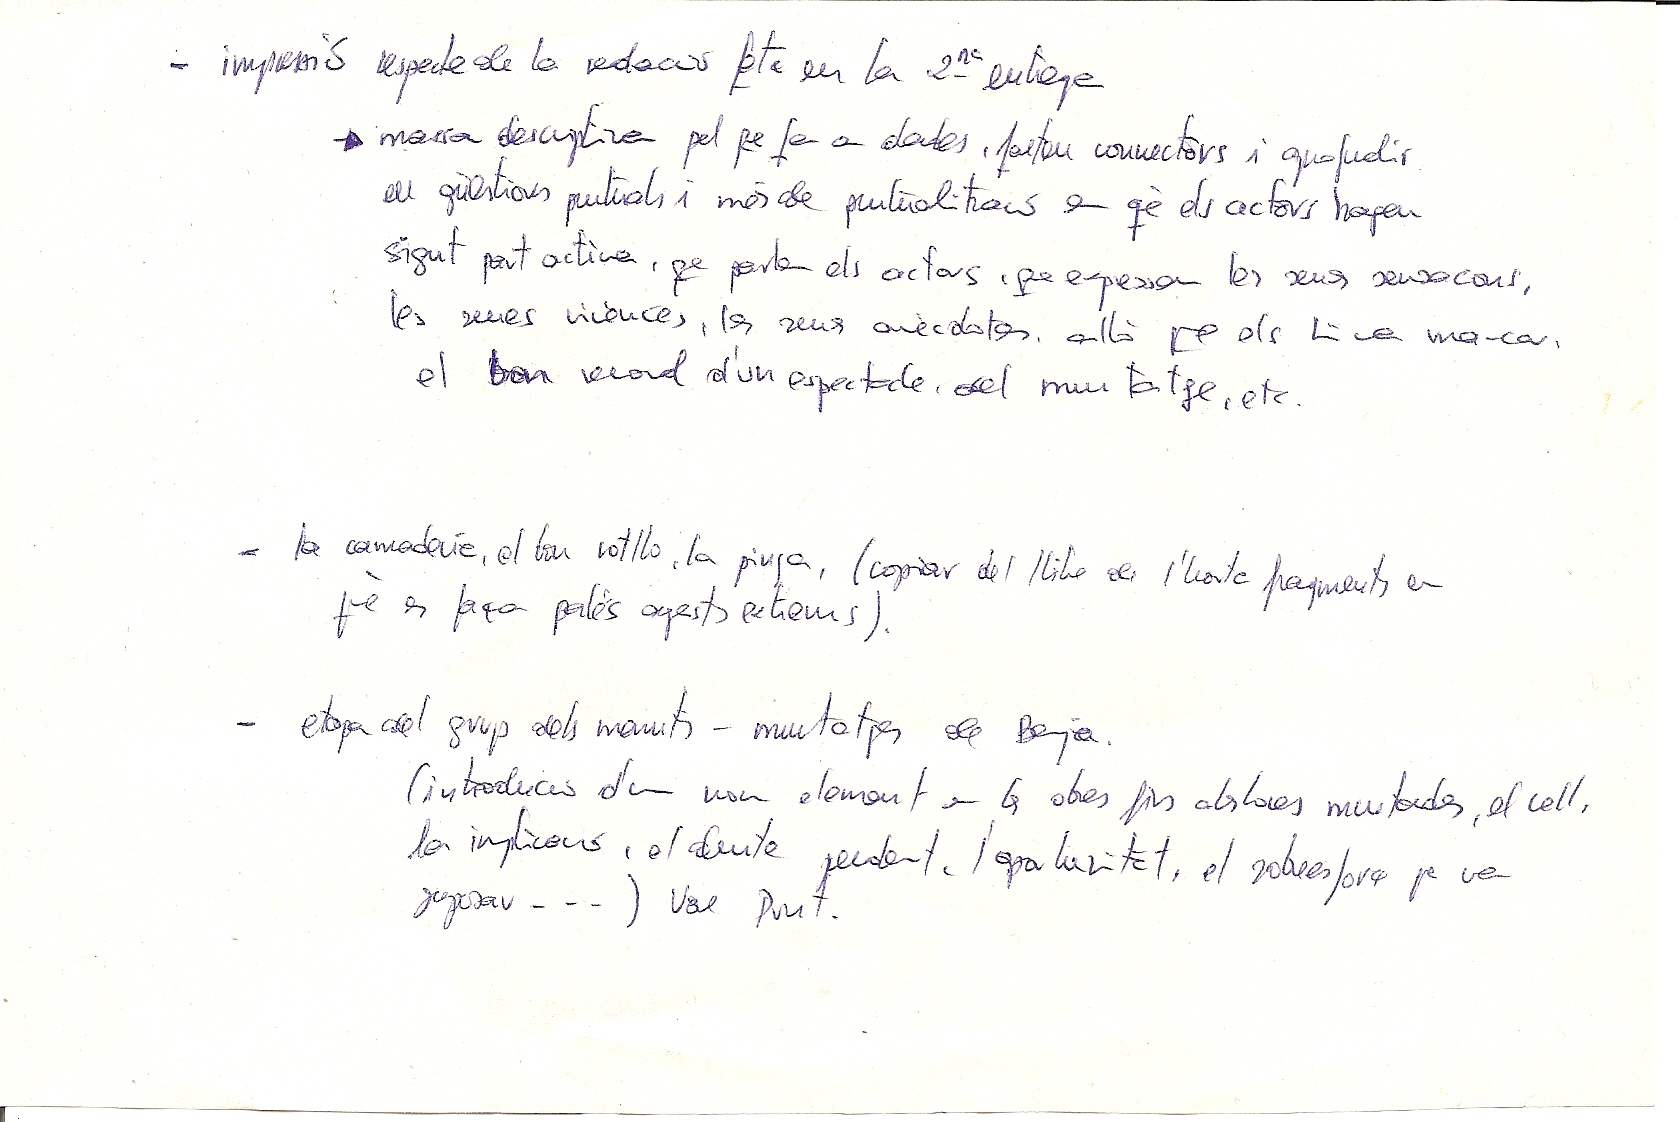 - impressió respecte de la redacció feta en la 2na entrega
→ massa descriptiva pel que fa a dades, falten connectors i aprofundir
en qüestions puntuals i més de puntualitzacions en què els actors hagen
sigut part activa, que parlen els actors, que expressen les seues sensacions,
les seues vivències, les seues anècdotes, allò que els hi va marcar,
el bon record d'un espectacle, del muntatge, etc.
- la camaderia, el bon rotllo, la pinya, (copiar del llibre de l'horta fragments en
què es faça palés aquests extrems).
- etapa del grup dels menuts - muntatges de Borja.
(introducció d'un nou element en les obres fins aleshores muntades, el cell,
la implicació, el deute pendent, l'oportunitat, el sobreesforç que va
suposar - - -) Vae Punt.